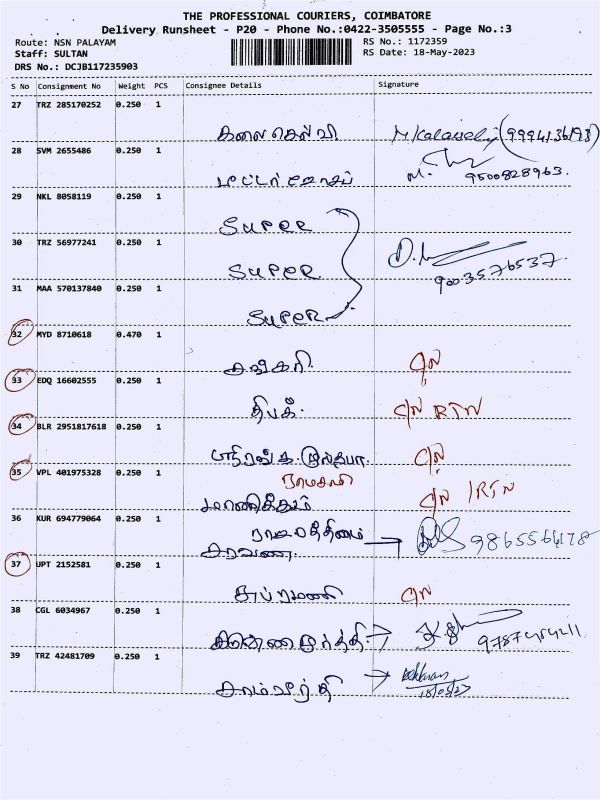 THE PROFESSIONAL COURIERS, COIMBATORE
Delivery Runsheet - P20 - Phone No.:0422-3505555 - Page No.:3
Route: NSN PALAYAM RS No.: 1172359
Staff: SULTAN RS Date: 18-May-2023
DRS No.: DCJB117235903
S No Consignment No Weight PCS Consignee Details Signature
27 TRZ 285170252 0.250 1
கலைசெல்வி M. Kalaiselvi (9994136198)
28 SVM 2655486 0.250 1
M. 9500828963.
29 NKL 8058119 0.250 1
SUPER
30 TRZ 56977241 0.250 1
SUPER 9003576537.
31 MAA 570137840 0.250 1
SUPER
32 MYD 8710618 0.470 1
சங்கரி.
33 EDQ 16602555 0.250 1
தீபக். RTN
34 BLR 2951817618 0.250 1
35 VPL 401975328 0.250 1
மாணிக்கம் /RTN
36 KUR 694779064 0.250 1
ராஜரத்தினம்
சரவண. 9865564178
37 UPT 2152581 0.250 1
சுப்ரமணி
38 CGL 6034967 0.250 1
கிருஷ்ணமூர்த்தி
39 TRZ 42481709 0.250 1
18/05/23